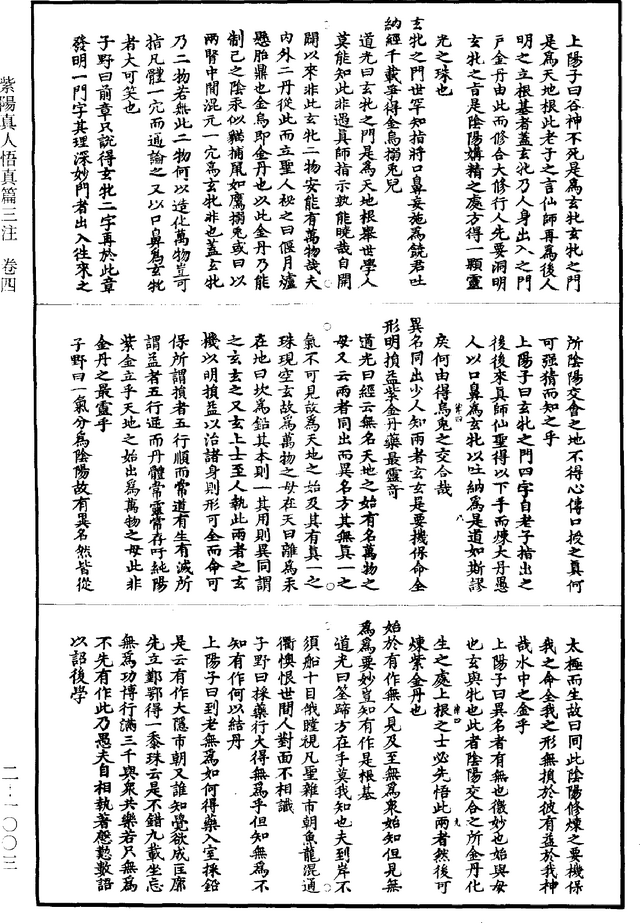 上陽子曰谷神不死是爲玄牝玄牝之門
是爲天地根此老子之言仙師再爲後人
明之立根基者蓋玄牝乃人身出入之門
戶金丹由此而修合大修行人先要洞明
玄牝之言是陰陽媾精之處方得一顆靈
光之珠也
玄牝之門世罕知指將口鼻妄施爲饒君吐
納經千載爭得金烏搦兎兒
道光曰玄牝之門是爲天地根舉世學人
莫能知此非遇真師指示孰能曉哉自開
闢以來非此玄牝二物安能有萬物哉夫
內外二丹從此而立聖人秘之曰偃月爐
懸胎鼎也金烏即金丹也以此金丹乃能
制己之陰汞似貓捕鼠如鷹搦兎或曰以
兩腎中間混元一穴爲玄牝非也蓋玄牝
乃二物若無此二物何以造化萬物豈可
指凡體一穴而通論之又以口鼻爲玄牝
者大可笑也
子野曰前章只說得玄牝二字再於此章
發明一門字其理深妙門者出入往來之
所陰陽交會之地不得心傳口授之真何
可強猜而知之乎
上陽子曰玄牝之門四字自老子指出之
後後來真師仙聖得以下手而煉大丹愚
人以口鼻爲玄牝以吐納爲是道如斯謬
戾何由得烏兎之交合哉
異名同出少人知兩者玄玄是要機保命全
形明損益紫金丹藥最靈奇
道光曰經云無名天地之始有名萬物之
母又云兩者同出而異名方其無真一之
氣不可見故爲天地之始及其有真一之
珠現空玄故爲萬物之母在天曰離爲汞
在地曰坎爲鉛其本則一其用則異同謂
之玄玄之又玄上士至人執此兩者之玄
機以明損益以治諸身則形可全而命可
保所謂損者五行順而常道有生有滅所
謂益者五行逆而丹體常靈常存吁純陽
紫金立乎天地之始出爲萬物之母此非
金丹之最靈乎
子野曰一氣分爲陰陽故有異名然皆從
太極而生故曰同此陰陽修煉之要機保
我之命全我之形無損於彼有益於我神
哉水中之金乎
上陽子曰異名者有無也徼妙也始與母
也玄與牝也此者陰陽交合之所金丹化
生之處上根之士必先悟此兩者然後可
煉紫金丹也
始於有作無人見及至無爲衆始知但見無
爲爲要妙豈知有作是根基
道光曰筌蹄方在手莫我知也夫到岸不
須船十目俄瞠視凡聖雜市朝魚龍混通
衢懊恨世間人對面不相識
子野曰採藥行火得無爲乎但知無爲不
知有作何以結丹
上陽子曰到老無爲如何得藥入室採鉛
是云有作大隱市朝又誰知覺欲成匡廓
先立鄞鄂得一黍珠云是不錯九載坐忘
無爲功博行滿三千與衆共樂若只無爲
不先有作此乃愚夫自相執著慇懃數語
以詔後學
紫陽真人悟真篇三注　卷四
二‥一〇〇三